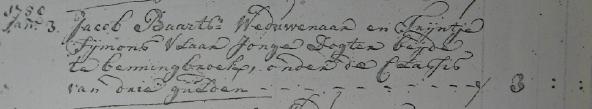 1786
Jan: 3. Jacob Baarts: Weduwenaar en Trijntje
Sijmons Vlaar Jonge Dogter beijde
te benningbroek, onder de Classis
van drie gulden - - - - - - - - 3 : :